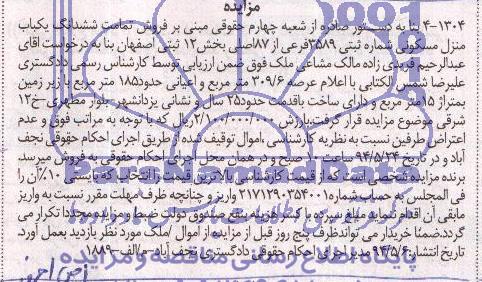 مزایده
۴-۱۳۰۴ بنا به دستور صادره از شعبه چهارم حقوقی مبنی بر فروش تمامت ششدانگ یکباب
منزل مسکونی شماره ثبتی ۳۵۸۹فرعی از ۸۷اصلی بخش۱۲ ثبتی اصفهان بنا به درخواست آقای
عبدالرحیم فریدی زاده مالک مشاعی ملک فوق ضمن ارزیابی توسط کارشناس رسمی دادگستری
علیرضا شمس الکتابی با اعلام عرصه ۳۰۹/۶ متر مربع و اعیانی حدود۱۸۵ متر مربع با زیر زمین
بمتراژ ۱۵متر مربع و دارای ساخت باقدمت حدود۲۵ سال و نشانی یزدانشهر- بلوار مطهری-خ۱۲
شرقی موضوع مزایده قرار گرفت.باارزش ۲/۱۰۰/۰۰۰/۰۰۰ریال که با توجه به مراتب فوق و عدم
اعتراض طرفین نسبت به نظریه کارشناسی ،اموال توقیف شده از طریق اجرای احکام حقوقی نجف
آباد و در تاریخ ۹۴/۵/۲۴ ساعت صبح و در همان محل اجرای احکام حقوقی به فروش میرسد
برنده مزایده شخصی است که از قیمت کارشناسی بالاترین قیمت را انتخاب که بایستی ۱۰٪آن را
فی المجلس به حساب شماره ۲۱۷۱۲۹۰۳۵۴۰۰۱ واریز و چنانچه ظرف مهلت مقرر نسبت به واریز
مابقی آن اقدام ننماید مبلغ سپرده با کسر هزینه بنفع صندوق دولت ضبط و مزایده مجددا تکرار می
گردد.ضمنا خریدار می تواند ظرف پنج روز قبل از مزایده از اموال /ملک مورد نظر بازدید بعمل آورد.
تاریخ انتشار:۹۴/۵/۶ مدیر اجرای احکام حقوقی دادگستری نجف آباد-م/الف-۱۸۸۹
پایگاه اطلاع رسانی مناقصه و مزایده